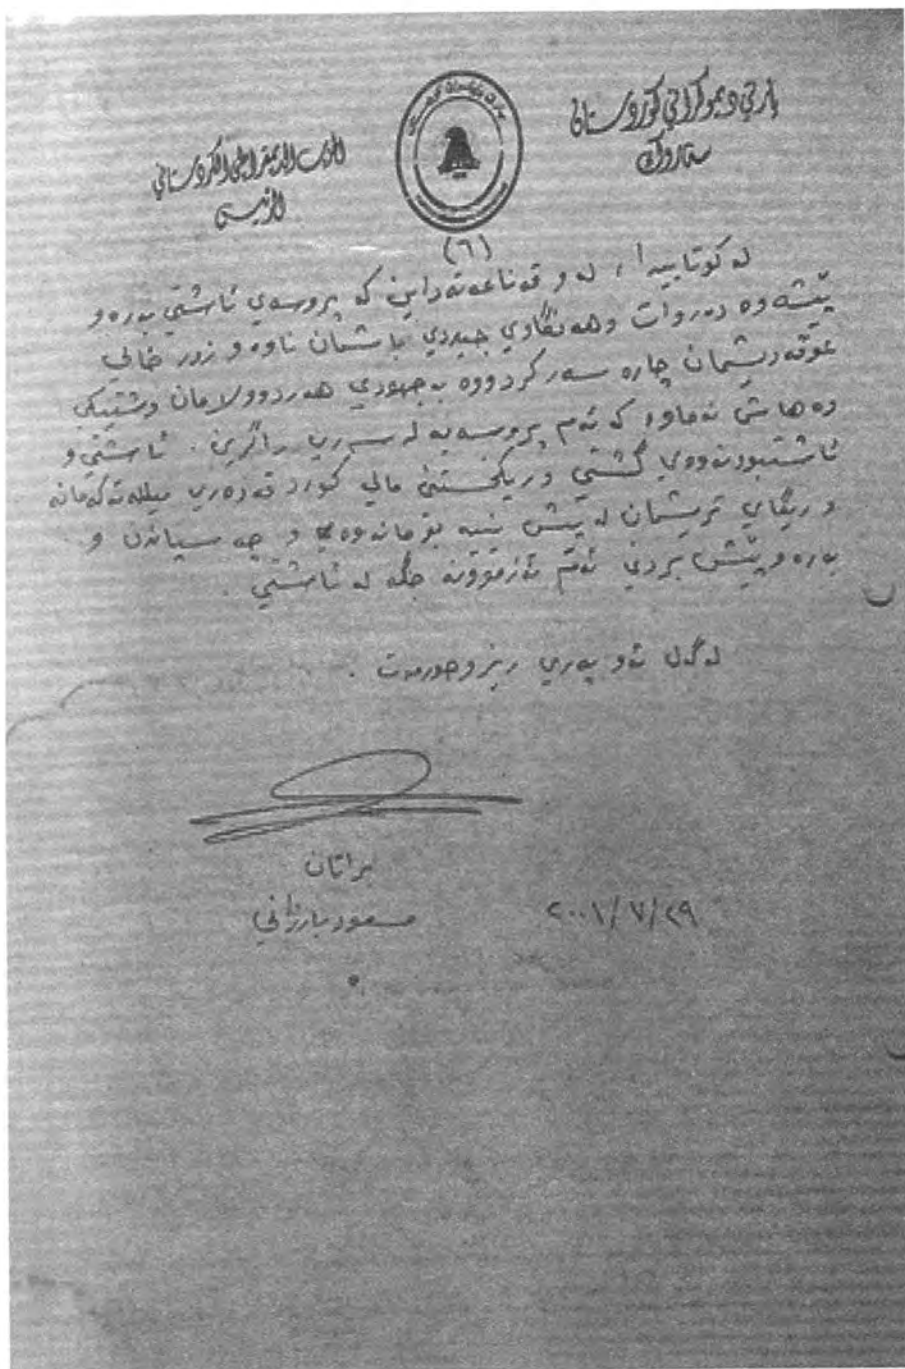 پارتي ديموكراتي كوردستان
سەرۆك
الحزب الديمقراطي الكردستاني
الرئيس
(٦)
لە كۆتاييدا ، لەو قەناعەتەداين كە پرۆسەي ئاشتي بەرەو
پێشەوە دەروات وهەنگاوي جيددي باشمان ناوە و زۆر خاڵي
عوقدەديشمان چارە سەر كردووە بەجهودي هەردوولامان وشتێكي
وەهاش نەماوە كە ئەم پرۆسەيە لەسەري راگرين . ئاشتي و
ئاشتبوونەوەي گشتي و رێكخستني ماڵي كورد قەدەري ميللەتەكەمانە
و رێگاي تريشمان لەپێش نييە بۆ مانەوە و چەسپاندن و
بەرەو پێش بردني ئەم ئەزموونە جگە لە ئاشتي .
لەگەڵ ئەو پەري رێز وحورمەت .
براتان
مسعود بارزاني
٢٠٠١/٧/٢٩